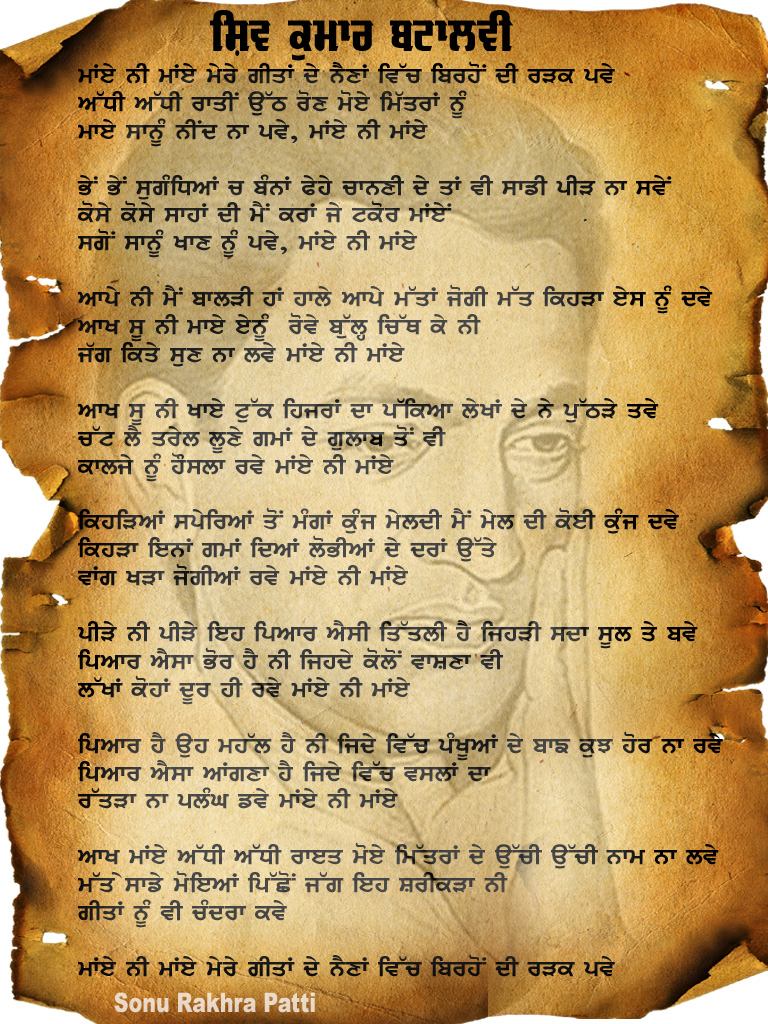 ਸ਼ਿਵ ਕੁਮਾਰ ਬਟਾਲਵੀ
ਮਾਂਏ ਨੀ ਮਾਂਏ ਮੇਰੇ ਗੀਤਾਂ ਦੇ ਨੈਣਾਂ ਵਿੱਚ ਬਿਰਹੋਂ ਦੀ ਰੜਕ ਪਵੇ
ਅੱਧੀ ਅੱਧੀ ਰਾਤੀਂ ਉੱਠ ਰੋਣ ਮੋਏ ਮਿੱਤਰਾਂ ਨੂੰ
ਮਾਏ ਸਾਨੂੰ ਨੀਂਦ ਨਾ ਪਵੇ, ਮਾਂਏ ਨੀ ਮਾਂਏ
ਭੇਂ ਭੇਂ ਸੁਗੰਧਿਆਂ ਚ ਬੰਨਾਂ ਫੇਹੇ ਚਾਨਣੀ ਦੇ ਤਾਂ ਵੀ ਸਾਡੀ ਪੀੜ ਨਾ ਸਵੇਂ
ਕੋਸੇ ਕੋਸੇ ਸਾਹਾਂ ਦੀ ਮੈਂ ਕਰਾਂ ਜੇ ਟਕੋਰ ਮਾਂਏਂ
ਸਗੋਂ ਸਾਨੂੰ ਖਾਣ ਨੂੰ ਪਵੇ, ਮਾਂਏ ਨੀ ਮਾਂਏ
ਆਪੇ ਨੀ ਮੈਂ ਬਾਲੜੀ ਹਾਂ ਹਾਲੇ ਆਪੇ ਮੱਤਾਂ ਜੋਗੀ ਮੱਤ ਕਿਹੜਾ ਏਸ ਨੂੰ ਦਵੇ
ਆਖ ਸੂ ਨੀ ਮਾਏ ਏਨੂੰ ਰੋਵੇ ਬੁੱਲ੍ਹ ਚਿੱਥ ਕੇ ਨੀ
ਜੱਗ ਕਿਤੇ ਸੁਣ ਨਾ ਲਵੇ ਮਾਂਏ ਨੀ ਮਾਂਏ
ਆਖ ਸੂ ਨੀ ਖਾਏ ਟੁੱਕ ਹਿਜਰਾਂ ਦਾ ਪੱਕਿਆ ਲੇਖਾਂ ਦੇ ਨੇ ਪੁੱਠੜੇ ਤਵੇ
ਚੱਟ ਲੈ ਤਰੇਲ ਲੂਣੇ ਗਮਾਂ ਦੇ ਗੁਲਾਬ ਤੋਂ ਵੀ
ਕਾਲਜੇ ਨੂੰ ਹੌਸਲਾ ਰਵੇ ਮਾਂਏ ਨੀ ਮਾਂਏ
ਕਿਹੜਿਆਂ ਸਪੇਰਿਆਂ ਤੋਂ ਮੰਗਾਂ ਕੁੰਜ ਮੇਲਦੀ ਮੈਂ ਮੇਲ ਦੀ ਕੋਈ ਕੁੰਜ ਦਵੇ
ਕਿਹੜਾ ਇਨਾਂ ਗਮਾਂ ਦਿਆਂ ਲੋਭੀਆਂ ਦੇ ਦਰਾਂ ਉੱਤੇ
ਵਾਂਗ ਖੜਾ ਜੋਗੀਆਂ ਰਵੇ ਮਾਂਏ ਨੀ ਮਾਂਏ
ਪੀੜੇ ਨੀ ਪੀੜੇ ਇਹ ਪਿਆਰ ਐਸੀ ਤਿੱਤਲੀ ਹੈ ਜਿਹੜੀ ਸਦਾ ਸੂਲ ਤੇ ਬਵੇ
ਪਿਆਰ ਐਸਾ ਭੋਰ ਹੈ ਨੀ ਜਿਹਦੇ ਕੋਲੋਂ ਵਾਸ਼ਣਾ ਵੀ
ਲੱਖਾਂ ਕੋਹਾਂ ਦੂਰ ਹੀ ਰਵੇ ਮਾਂਏ ਨੀ ਮਾਂਏ
ਪਿਆਰ ਹੈ ਉਹ ਮਹੱਲ ਹੈ ਨੀ ਜਿਦੇ ਵਿੱਚ ਪੰਖੂਆਂ ਦੇ ਬਾਙ ਕੁਝ ਹੋਰ ਨਾ ਰਵੇ
ਪਿਆਰ ਐਸਾ ਆਂਗਣਾ ਹੈ ਜਿਦੇ ਵਿੱਚ ਵਸਲਾਂ ਦਾ
ਰੱਤੜਾ ਨਾ ਪਲੰਘ ਡਵੇ ਮਾਂਏ ਨੀ ਮਾਂਏ
ਆਖ ਮਾਂਏ ਅੱਧੀ ਅੱਧੀ ਰਾੲਤ ਮੋਏ ਮਿੱਤਰਾਂ ਦੇ ਉੱਚੀ ਉੱਚੀ ਨਾਮ ਨਾ ਲਵੇ
ਮੱਤ ਸਾਡੇ ਮੋਇਆਂ ਪਿੱਛੋਂ ਜੱਗ ਇਹ ਸ਼ਰੀਕੜਾ ਨੀ
ਗੀਤਾਂ ਨੂੰ ਵੀ ਚੰਦਰਾ ਕਵੇ
ਮਾਂਏ ਨੀ ਮਾਂਏ ਮੇਰੇ ਗੀਤਾਂ ਦੇ ਨੈਣਾਂ ਵਿੱਚ ਬਿਰਹੋਂ ਦੀ ਰੜਕ ਪਵੇ
Sonu Rakhra Patti